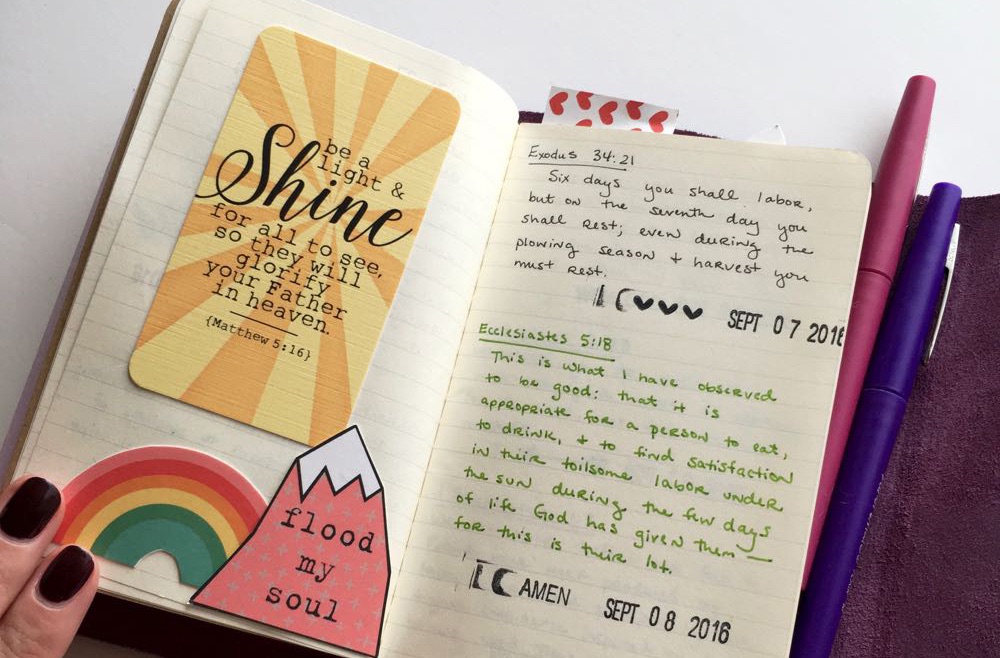 be a
light &
Shine
for all to see,
so they will
glorify
your Father
in heaven.
{Matthew 5:16}
flood
my
soul
Exodus 34:21
Six days you shall labor,
but on the seventh day you
shall rest; even during the
plowing season + harvest you
must rest.
SEPT 07 2016
Ecclesiastes 5:18
This is what I have observed
to be good: that it is
appropriate for a person to eat,
to drink, + to find satisfaction
in their toilsome labor under
the sun during the few days
of life God has given them—
for this is their lot.
AMEN SEPT 08 2016